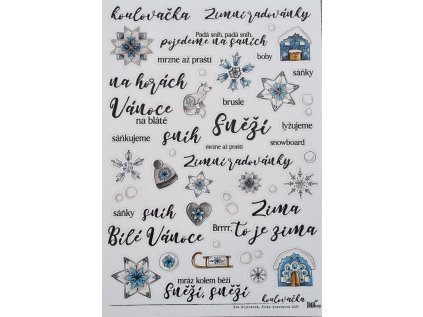 koulovačka
Zimní radovánky
Padá sníh, Padá sníh,
pojedeme na saních
mrzne až praští
boby
sáňky
na horách
Vánoce
na blátě
brusle
Sněží
lyžujeme
sáňkujeme
sníh
mrzne až praští
snowboard
Zimní radovánky
sáňky
sníh
Zima
Bílé Vánoce
Brrrr,
to je zima
mráz kolem běží
Sněží, sněží
koulovačka